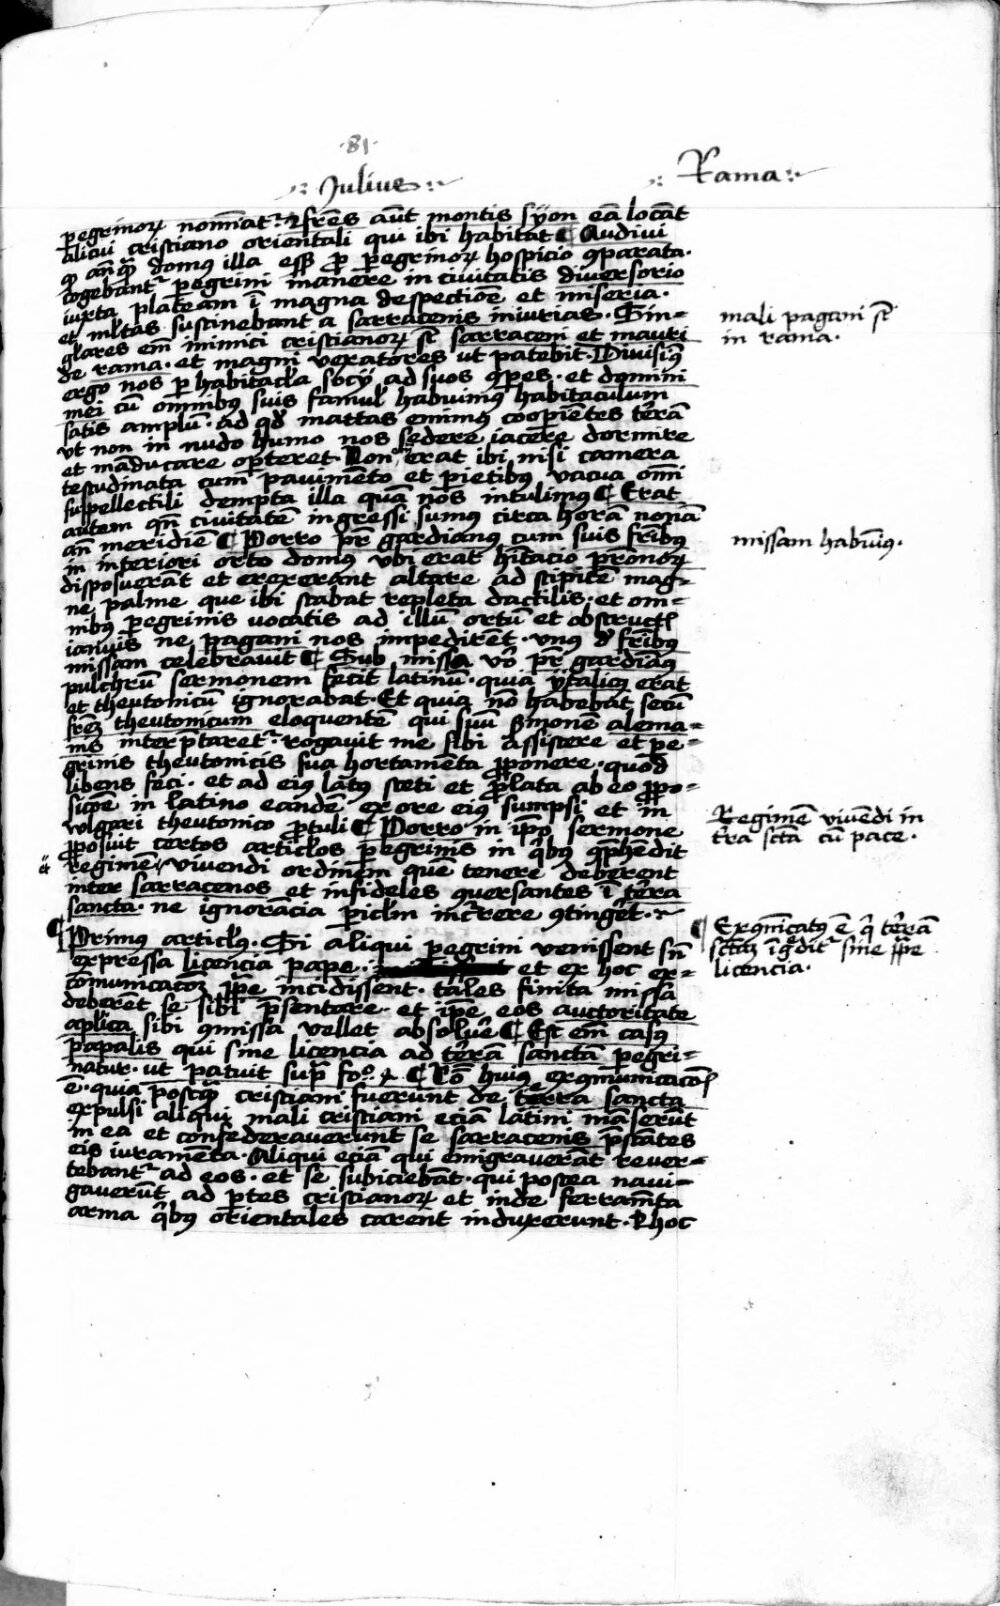 ·81·
·: Julius :·
·: Rama :·
peregrinorꝝ nominatᷣ. ⁊ fr̄es aūt montis syon eā locāt
alicui cristiano orientali qui ibi habitat ¶ Audivi
ꝙ anq̄ꝫ domus illa eēt ꝓ peregrinorꝝ hospicio ꝯparata.
cogebantᷣ peregrini manere in civitatis diversorio
iuxta plateam ī magna despectiōe et miseria.
et ml̄tas sustinebant a sarracenis iniurias. Sin-
glares em̄ inimici cristianorꝝ st̄ sarraceni et mauri
de rama. et magni vexatores ut patebit. Divisimꝰ
ergo nos ꝑ habitacl̄a socij ad suos ꝯꝑes. et domini
mei cū omnibꝰ suis famul̄ habuimꝰ habitaculum
satis amplū. ad qd̄ mattas emimꝰ cooꝑiētes terrā
ut non in nudo humo nos sedere iacere dormire
et māducare oꝑteret. Non erat ibi nisi camera
testudinata cum pavimēto et pietibꝰ vacua omī
suppellectili dempta illa quā nos intulimꝰ ¶ Erat
autem qn̄ civitatē ingressi sumus circa horā nonā
an̄ meridiē ¶ Porro pr̄ gardianꝰ cum suis fr̄ibꝰ
in interiori orto domus ubi erat hitacio pr̄onorꝝ
disposuerāt et erexerant altare ad stipitē mag-
ne palme que ibi stabat repleta dactilis. et om-
nibꝰ ꝑegrinis vocatis ad illū ortū et obstructꝭ
ianuis ne pagani nos impedirēt. unus d' fr̄ibꝰ
missam celebravit ¶ Sub missa vo̊ pr̄ gardianꝰ
pulchrū sermonem fecit latinū. quia ytalicus erat
et theutonicū ignorabat. Et quia nō habebat secū
fr̄eꝫ theutonicum eloquentē qui suū ẜmonē alema-
nis interp̄taretᷣ. rogavit me sibi assistere et pe-
grinis theutonicis sua hortamēta ꝓponere. quod
libens feci. et ad eius latꝰ steti et p̄lata ab eo ꝓpo-
sicōe in latino eandē ex ore eius sumpsi et in
vulgari theutonico ꝓtuli ¶ Porro in ip̄o sermone
ꝓposuit certos articl̄os ꝑegrinis in q̄bꝰ ꝯp̄hēdit
regimē vivendi ordinem quē tenere deberent
inter sarracenos et infideles ꝯversantes ī terra
sancta. ne ignorācia ꝑicl̄m incᷣrere ꝯtingēt.
¶ Primus articl̄ꝰ. Si aliqui ꝑegrini venissent sn̄
expressa licencia pape. et ex hoc ex-
comunicatorꝫ pape incidissent. tales finita missa
deberēt se sibi p̄sentare. et ip̄e eos auctoritate
aplica sibi ꝯmissa vellet absolvē ¶ Est em̄ casꝰ
papalis qui sine licencia ad terrā sanctā peregri-
natur. ut patuit sup̄ fo̊. ¶ Rō huius exꝯmunicacōꝭ
ē. quia postq̄ꝫ cristiani fuerunt de terra sancta
expulsi aliqui mali cristiani eciam latini māserūt
in ea et confederaverunt se sarracenis p̄stātes
eis iuramēta. Aliqui eciā qui emigraverāt rever-
tebantᷣ ad eos. et se subiciebāt. qui postea navi-
gaverūt ad ꝑtes cristianorꝝ et inde ferramēta
arma q̄bus orientales carent induxerunt. ⁊ hoc
mali pagani st̄
in rama.
missam habuimꝰ.
Regimē vivēdi in
terra sctā cū pace.
¶ Exꝯmūicatꝰ ē q̄ terrā
sctāꝫ īgreditᷣ sine pape
licencia.